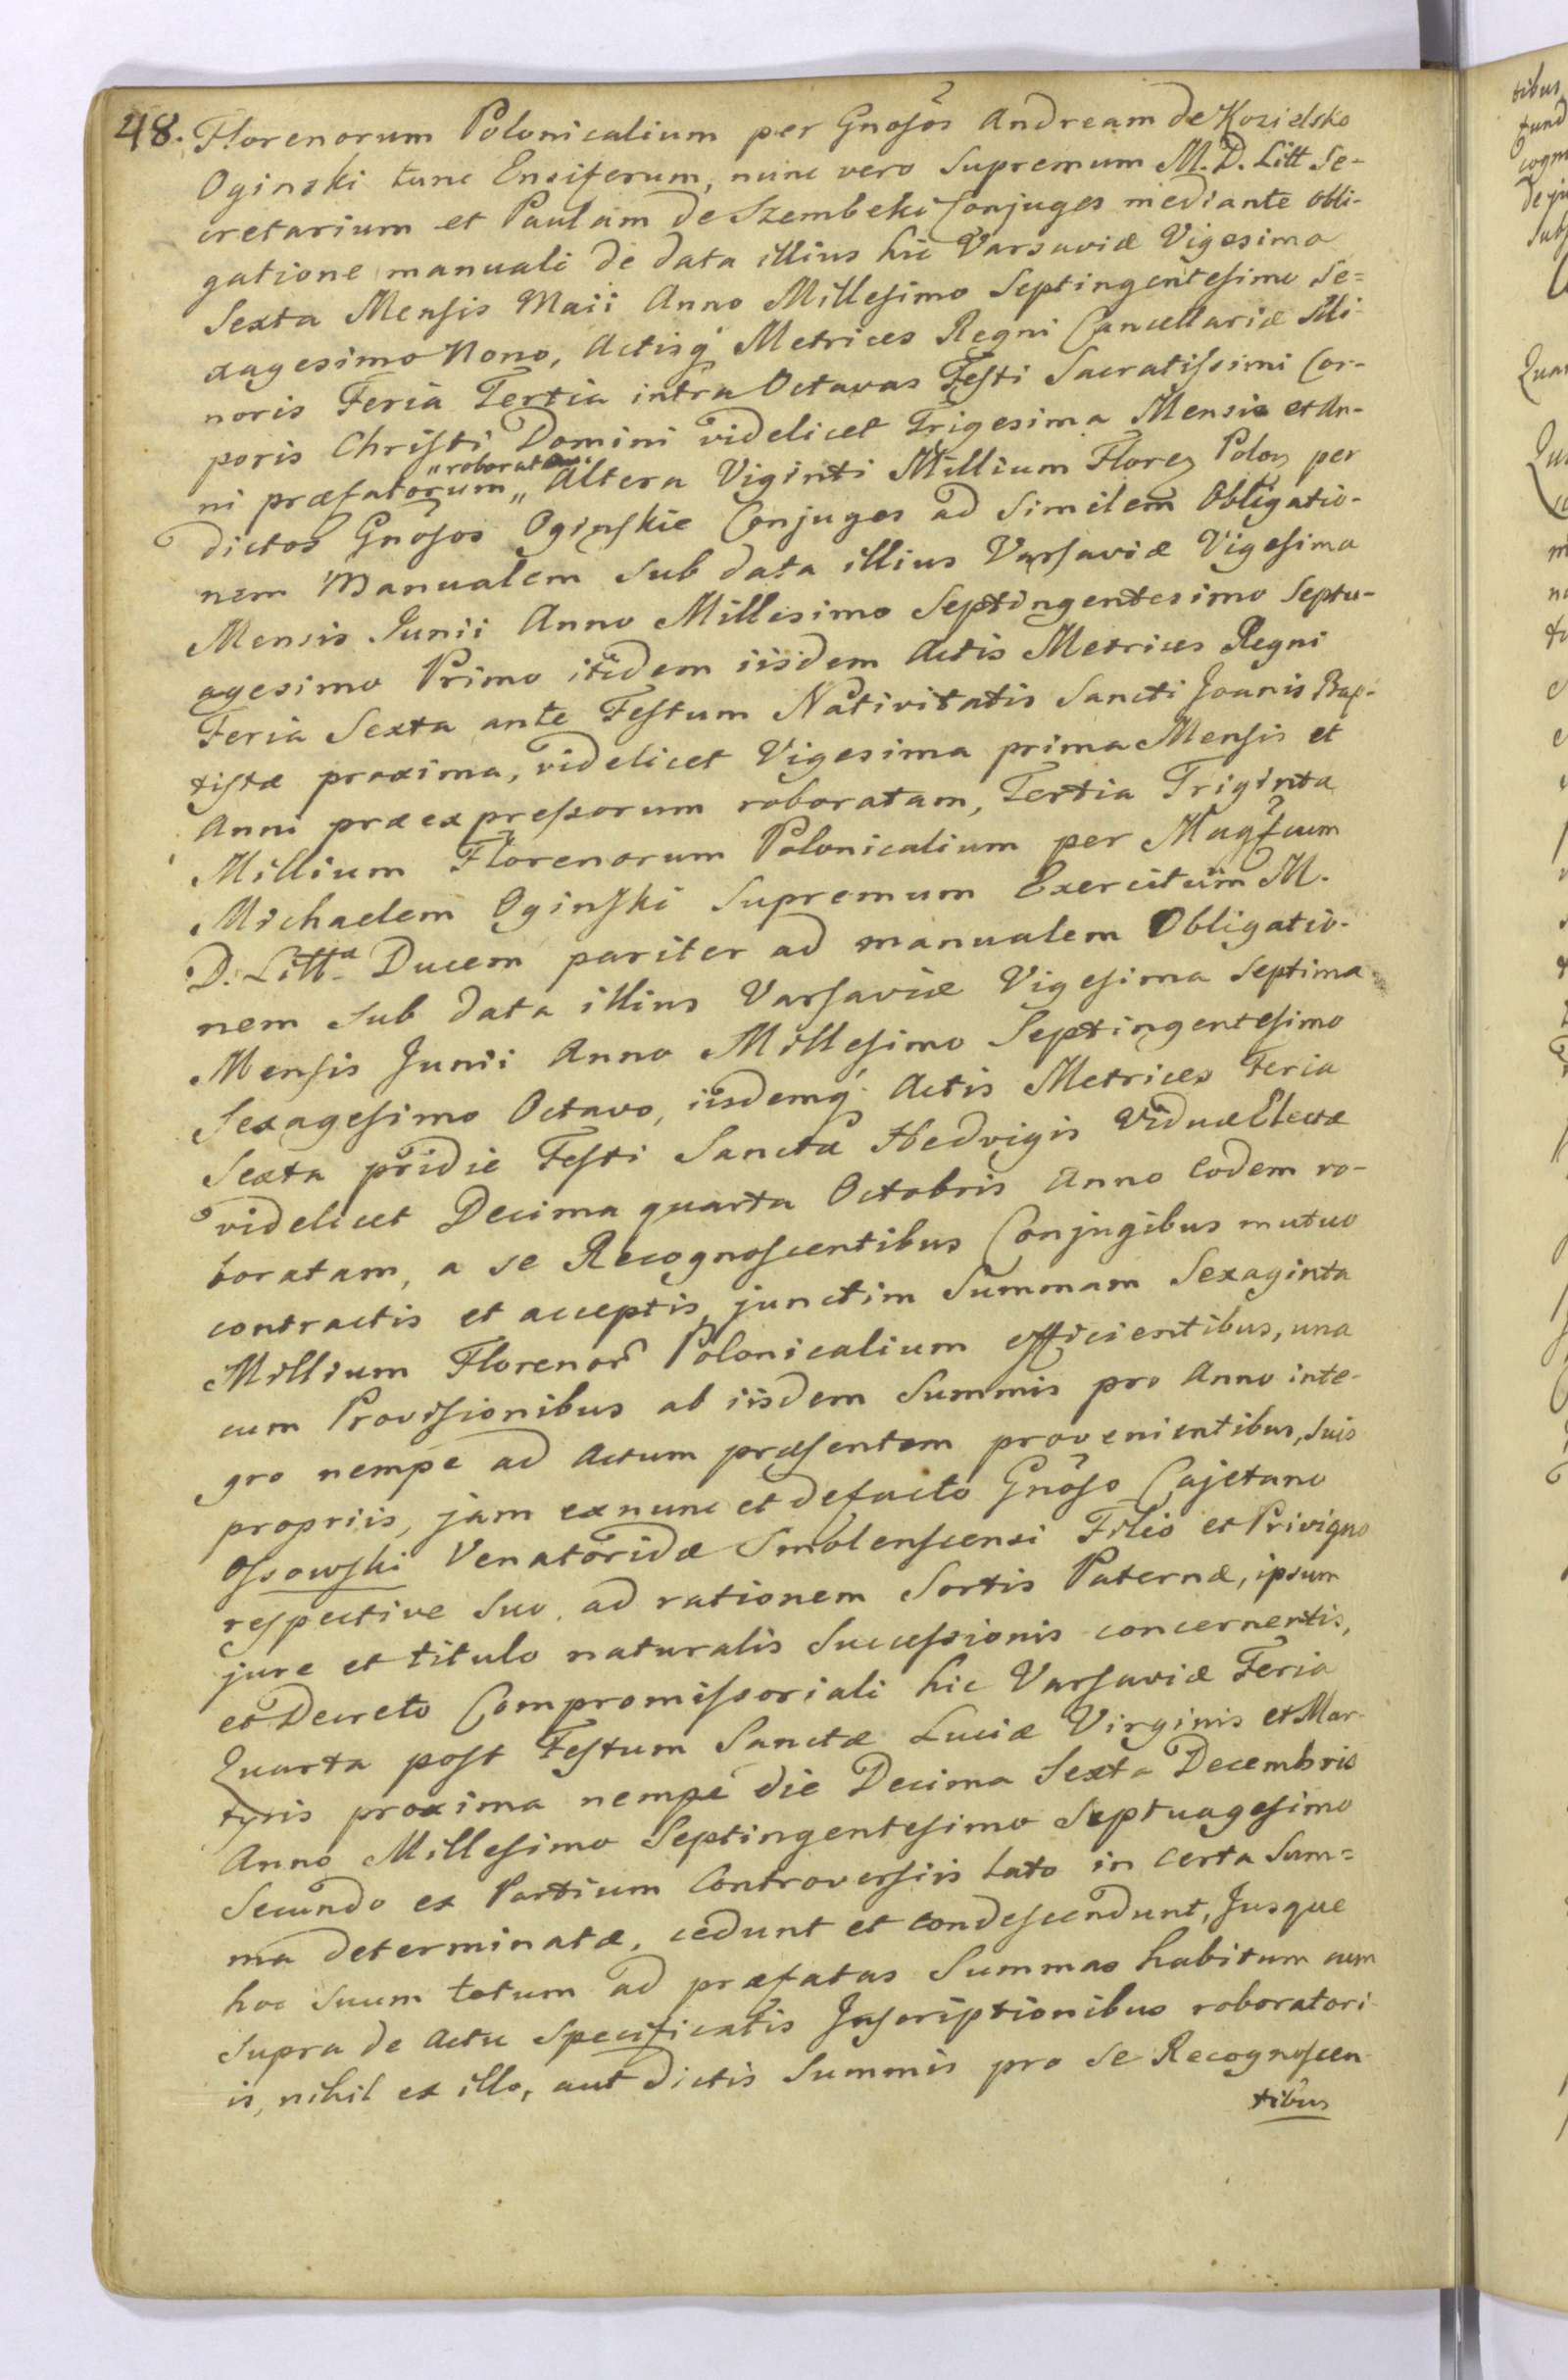 48. Florenorum Polonicalium per Gnosos Andream de Kozielsko
Oginski tunc Ensiferum, nunc vero Supremum M. D. Litt Se-
cretarium et Paulam de Szembeki Conjuges mediante obli-
gatione manuali de data illius hic Varsaviæ Vigesima
Sexta Mensis Maii Anno Millesimo Septingentesimo Se=
xagesimo Nono, Actisq' Metrices Regni Cancellariæ Mi-
noris Feria Tertia intra Octavas Festi Sacratissimi Cor-
poris Christi Domini videlicet Trigesima Mensis et An-
ni præfatorum „roboratam„ Altera Viginti Millium Floren Polon per
dictos Gnosos Oginskie Conjuges ad similem Obligatio-
nem Manualem sub data illius Varsaviæ Vigesima
Mensis Junii Anno Millesimo Septingentesimo Septu-
agesimo Primo itidem iisdem Actis Metrices Regni
Feria Sexta ante Festum Nativitatis Sancti Joanis Bap-
tistæ proxima, videlicet Vigesima prima Mensis et
Anni præexpressorum roboratam, Tertia Triginta
Millium Florenorum Polonicalium per Magfcum
Michaelem Oginski Supremum Exercituum M.
D. Litt^a Ducem pariter ad manualem Obligatio-
nem sub data illius Varsaviæ Vigesima Septima
Mensis Junii Anno Millesimo Septingentesimo
Sexagesimo Octavo, iisdemq' Actis Metrices Feria
Sexta pridie Festi Sanctæ Hedvigis Viduæ Electæ
videlicet Decima quarta Octobris Anno eodem ro-
boratam, a se Recognoscentibus Conjugibus mutuo
contractis et acceptis, junctim Summam Sexaginta
Millium Florenor Polonicalium efficientibus, una
cum Provisionibus ab iisdem Summis pro Anno inte-
gro nempe ad Actum præsentem provenientibus, suis
propriis, jam exnunc et defacto Gnoso Cajetano
Ossowski Venatoridæ Smolenscensi Filio et Privigno
respective suo, ad rationem Sortis Paternæ, ipsum
jure et titulo naturalis Successionis concernentis,
et Decreto Compromissoriali hic Varsaviæ Feria
Quarta post Festum Sanctæ Luciæ Virginis et Mar-
tyris proxima nempe die Decima Sexta Decembris
Anno Millesimo Septingentesimo Septuagesimo
Secundo ex Partium Controversiis lato in certa Sum=
ma determinatæ, cedunt et condescendunt, Jusque
hoc suum totum ad præfatas Summas habitum cum
supra de Actu specificatis Inscriptionibus roboratori-
is, nihil ex illo, aut dictis Summis pro se Recognoscen
tibus